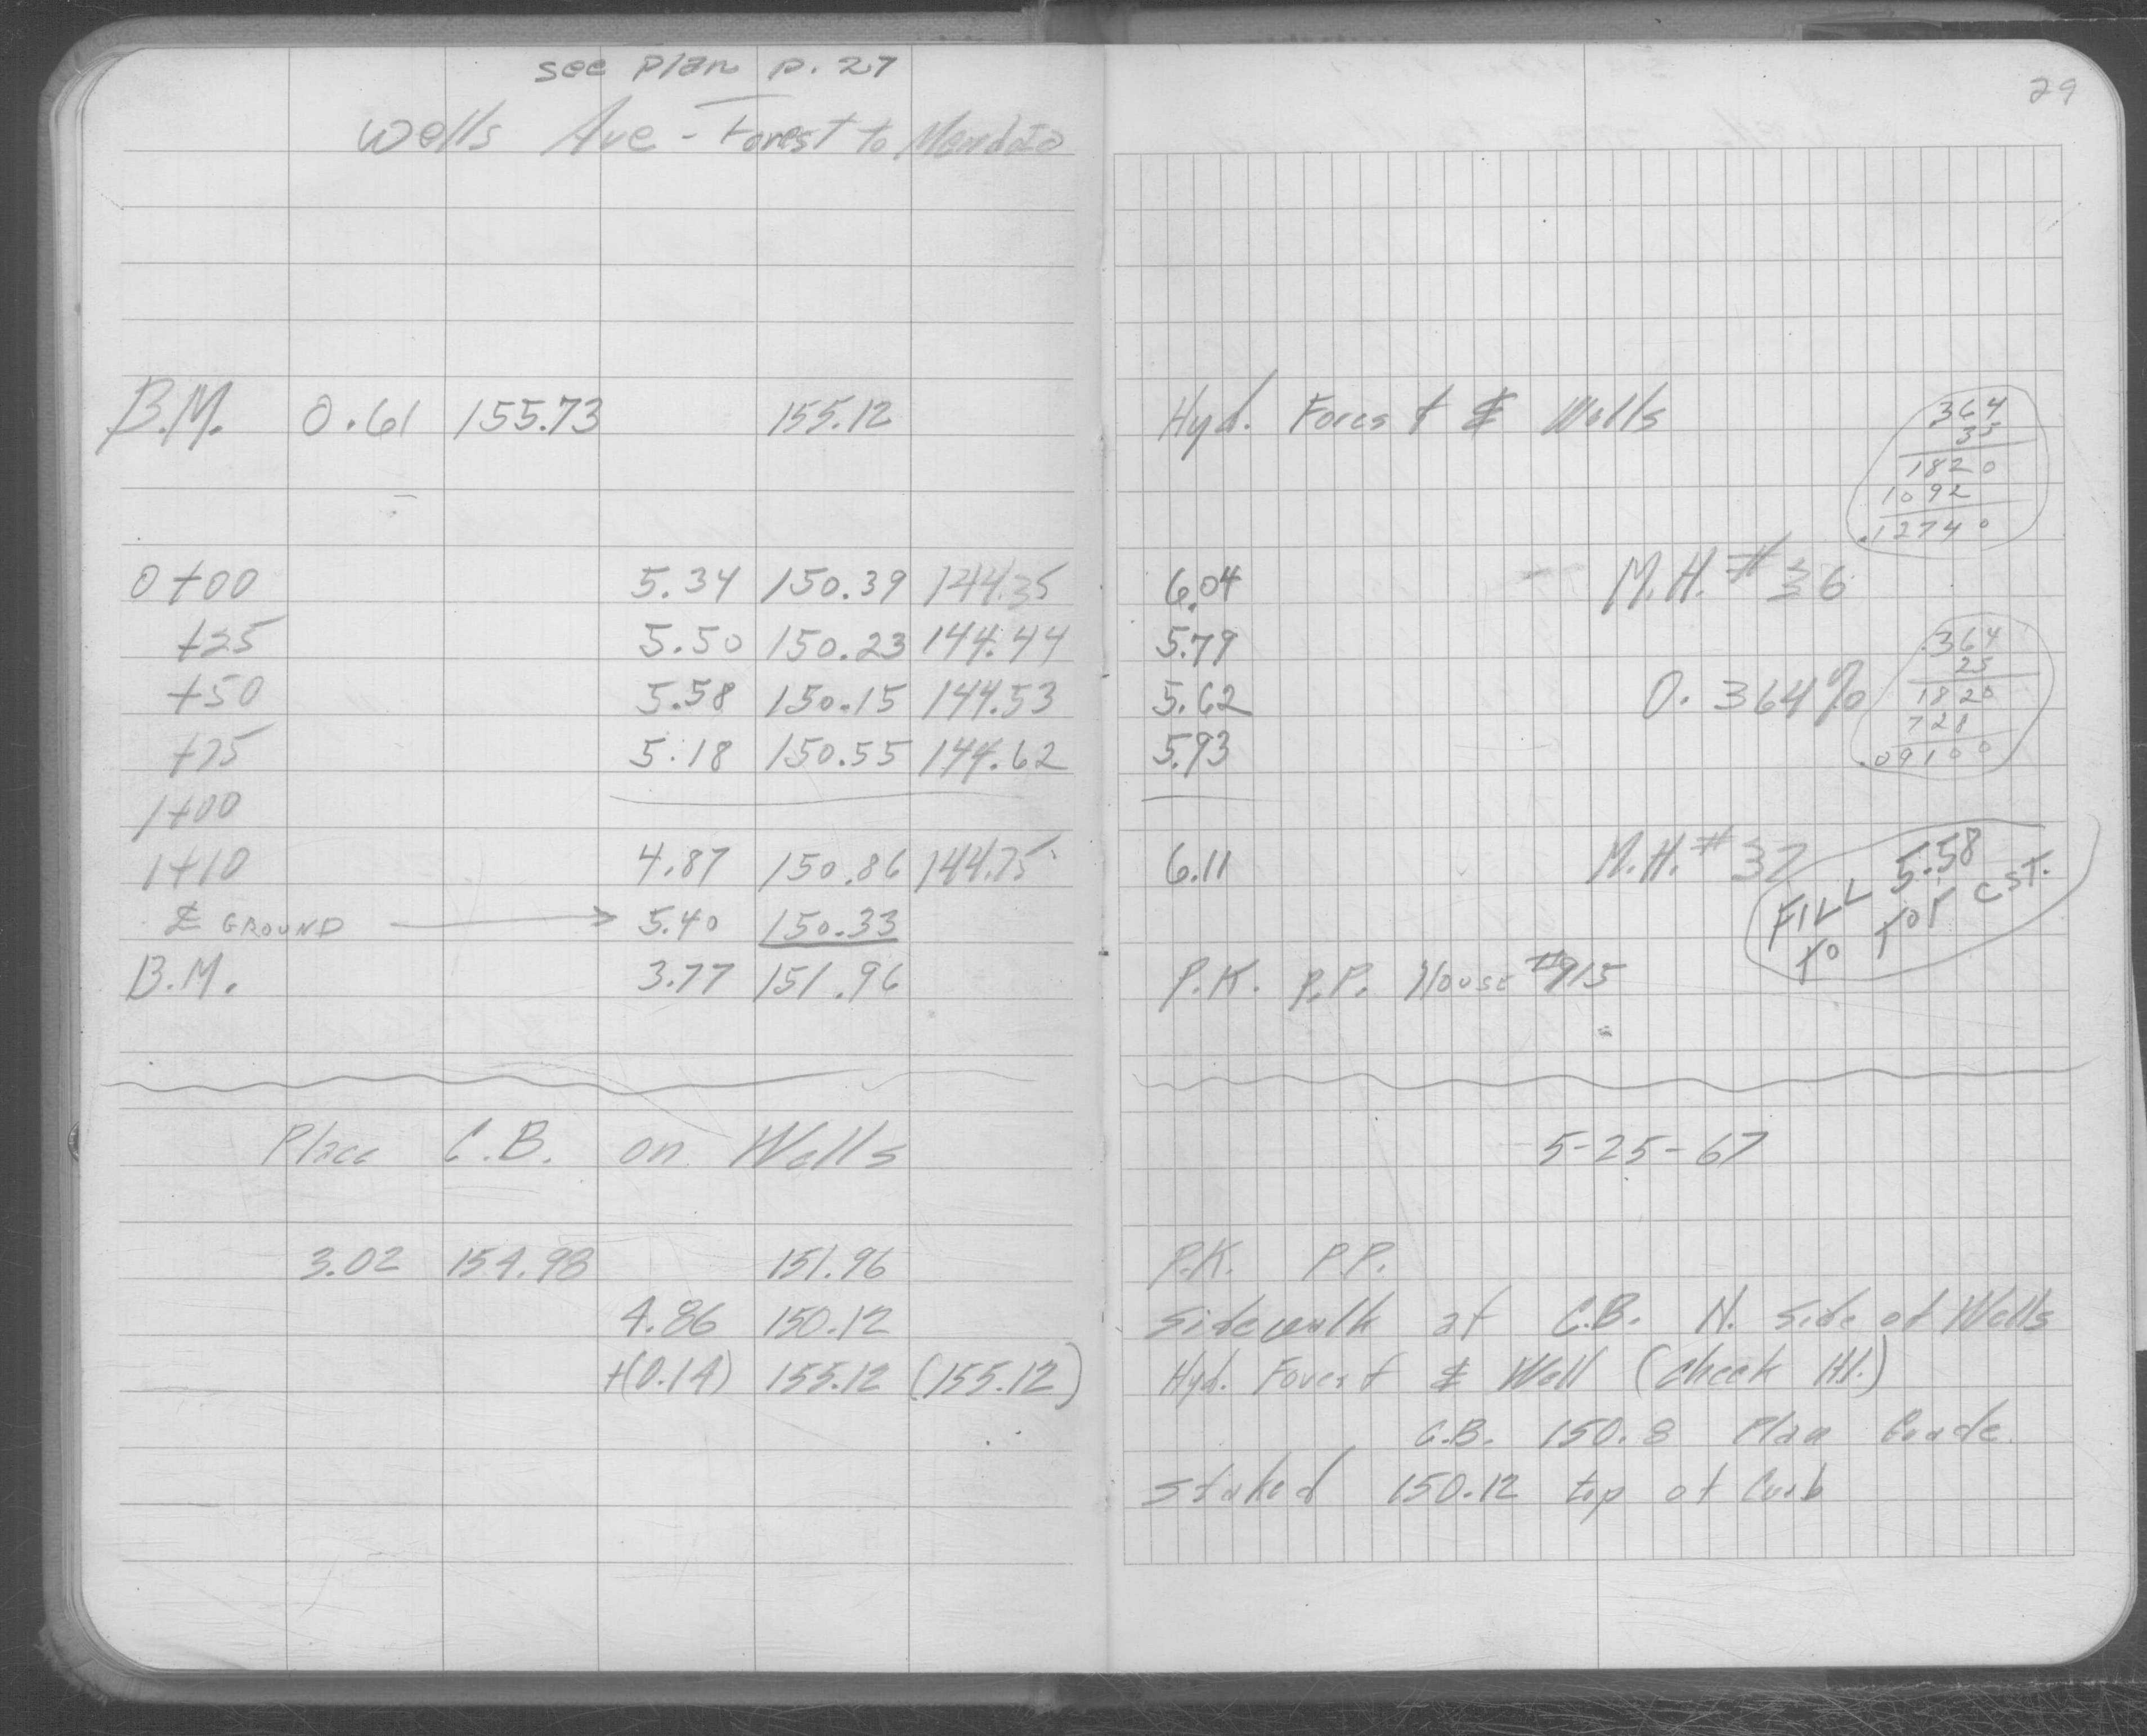 see plan p. 27
29
Wells Ave - Forest to Mendota
B.M. 0.61 155.73 155.12 Hyd. Forest & Wells
364
35
1820
1092
.12740
0+00 5.34 150.39 144.35 6.04 M.H. # 36
+25 5.50 150.23 144.44 5.79
+50 5.58 150.15 144.53 5.62 0.364%
+75 5.18 150.55 144.62 5.93
.364
25
1820
728
.09100
1+00
1+10 4.87 150.86 144.75 6.11 M.H. # 37
℄ GROUND → 5.40 150.33
FILL 5.58
TO TOP CST.
B.M. 3.77 151.96 P.K. P.P. House #915
Place C.B. on Wells 5-25-67
3.02 154.98 151.96 P.K. P.P.
4.86 150.12 Sidewalk at C.B. N. Side of Wells
+(0.14) 155.12 (155.12) Hyd. Forest & Well (check H.I.)
C.B. 150.8 Plan Grade
Staked 150.12 top of Curb